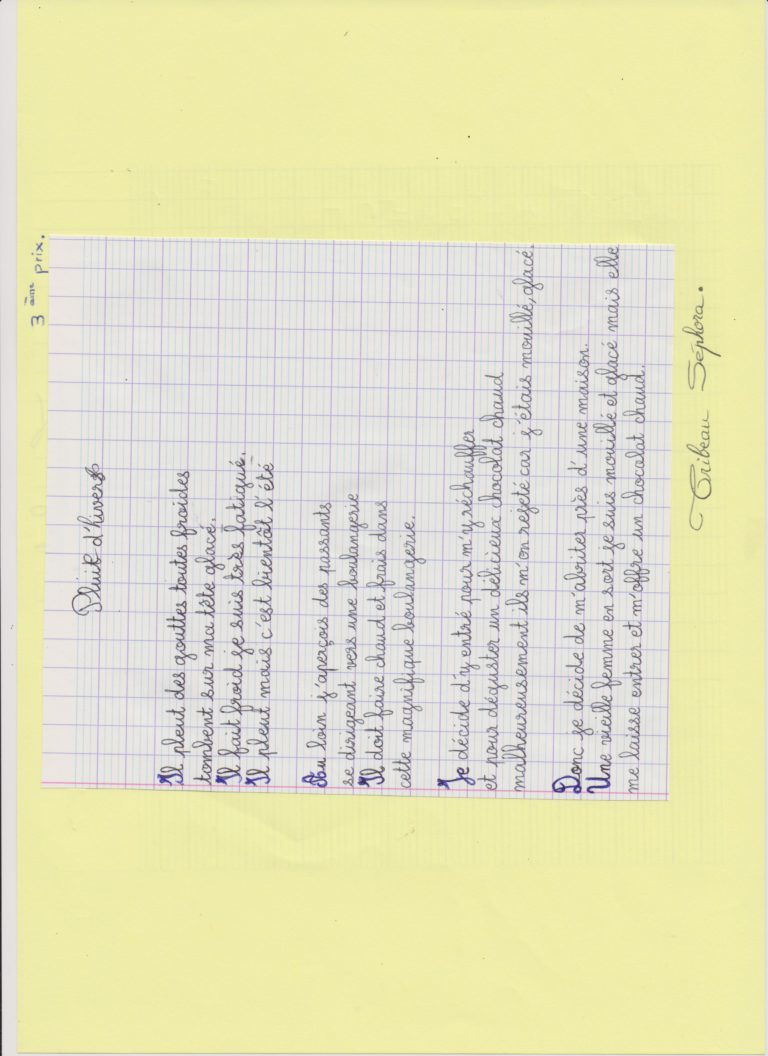 3 ème prix.
Pluie d'hivers
Il pleut des gouttes toutes froides
tombent sur ma tête glacé.
Il fait froid je suis très fatigué.
Il pleut mais c'est bientôt l'été
Au loin j'aperçois des passants
se dirigeant vers une boulangerie
Il doit faire chaud et frais dans
cette magnifique boulangerie.
Je décide d'y entré pour m'y réchauffer
et pour déguster un délicieux chocolat chaud
malheureusement ils m'on rejeté car j'étais mouillé, glacé.
Donc je décide de m'abrites près d'une maison.
Une vieille femme en sort je suis mouillé et glacé mais elle
me laisse entrer et m'offre un chocolat chaud.
Tribeau Séphora.